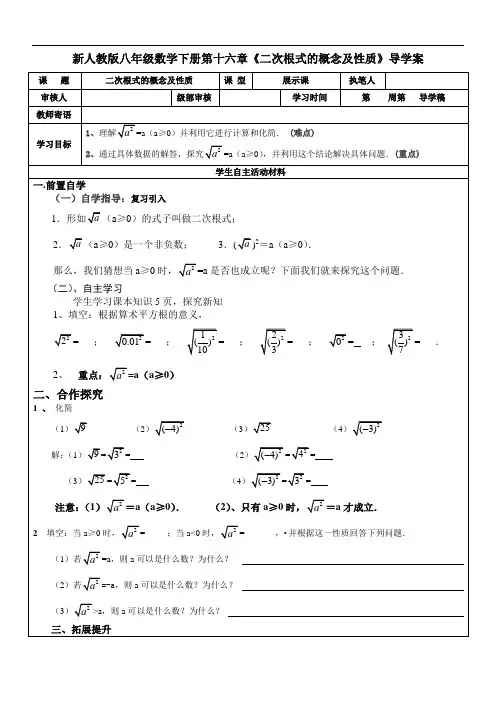 新人教版八年级数学下册第十六章《二次根式的概念及性质》导学案
课 题 二次根式的概念及性质 课 型 展示课 执笔人
审核人 级部审核 学习时间 第 周第 导学稿
教师寄语
学习目标
1、理解√a²=a（a≥0）并利用它进行计算和化简． (难点)
2、通过具体数据的解答，探究√a²=a（a≥0），并利用这个结论解决具体问题．(重点)
学生自主活动材料
一.前置自学
（一）自学指导：复习引入
1．形如√a（a≥0）的式子叫做二次根式；
2．√a（a≥0）是一个非负数； 3．(√a)²＝a（a≥0）．
那么，我们猜想当a≥0时，√a²=a是否也成立呢？下面我们就来探究这个问题．
（二）、自主学习
学生学习课本知识5页，探究新知
1、填空：根据算术平方根的意义，
√2²=___；√0.01²=___；√(1/10)²=___；√(2/3)²=___；√0²=___；√(3/7)²=___．
2、 重点：√a²=a（a≥0）
二、合作探究
1 、 化简
（1）√9 （2）√(-4)² （3）√25 （4）√(-3)²
解：（1）√9=√3²=___ （2）√(-4)²=√4²=___
（3）√25=√5²=___ （4）√(-3)²=√3²=___
注意：（1）√a²＝a（a≥0）． （2）、只有a≥0时，√a²＝a才成立．
2 填空：当a≥0时，√a²=____；当a<0时，√a²=_____，•并根据这一性质回答下列问题．
（1）若√a²=a，则a可以是什么数？为什么？
（2）若√a²=-a，则a可以是什么数？为什么？
（3）√a²>a，则a可以是什么数？为什么？
三、拓展提升